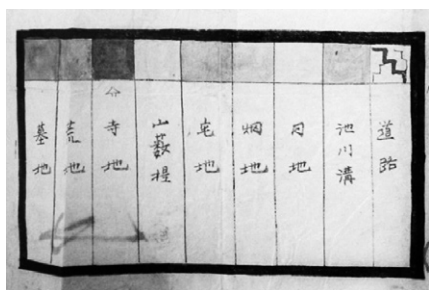 道路
池川溝
田地
畑地
宅地
山藪堤
寺地
荒地
墓地